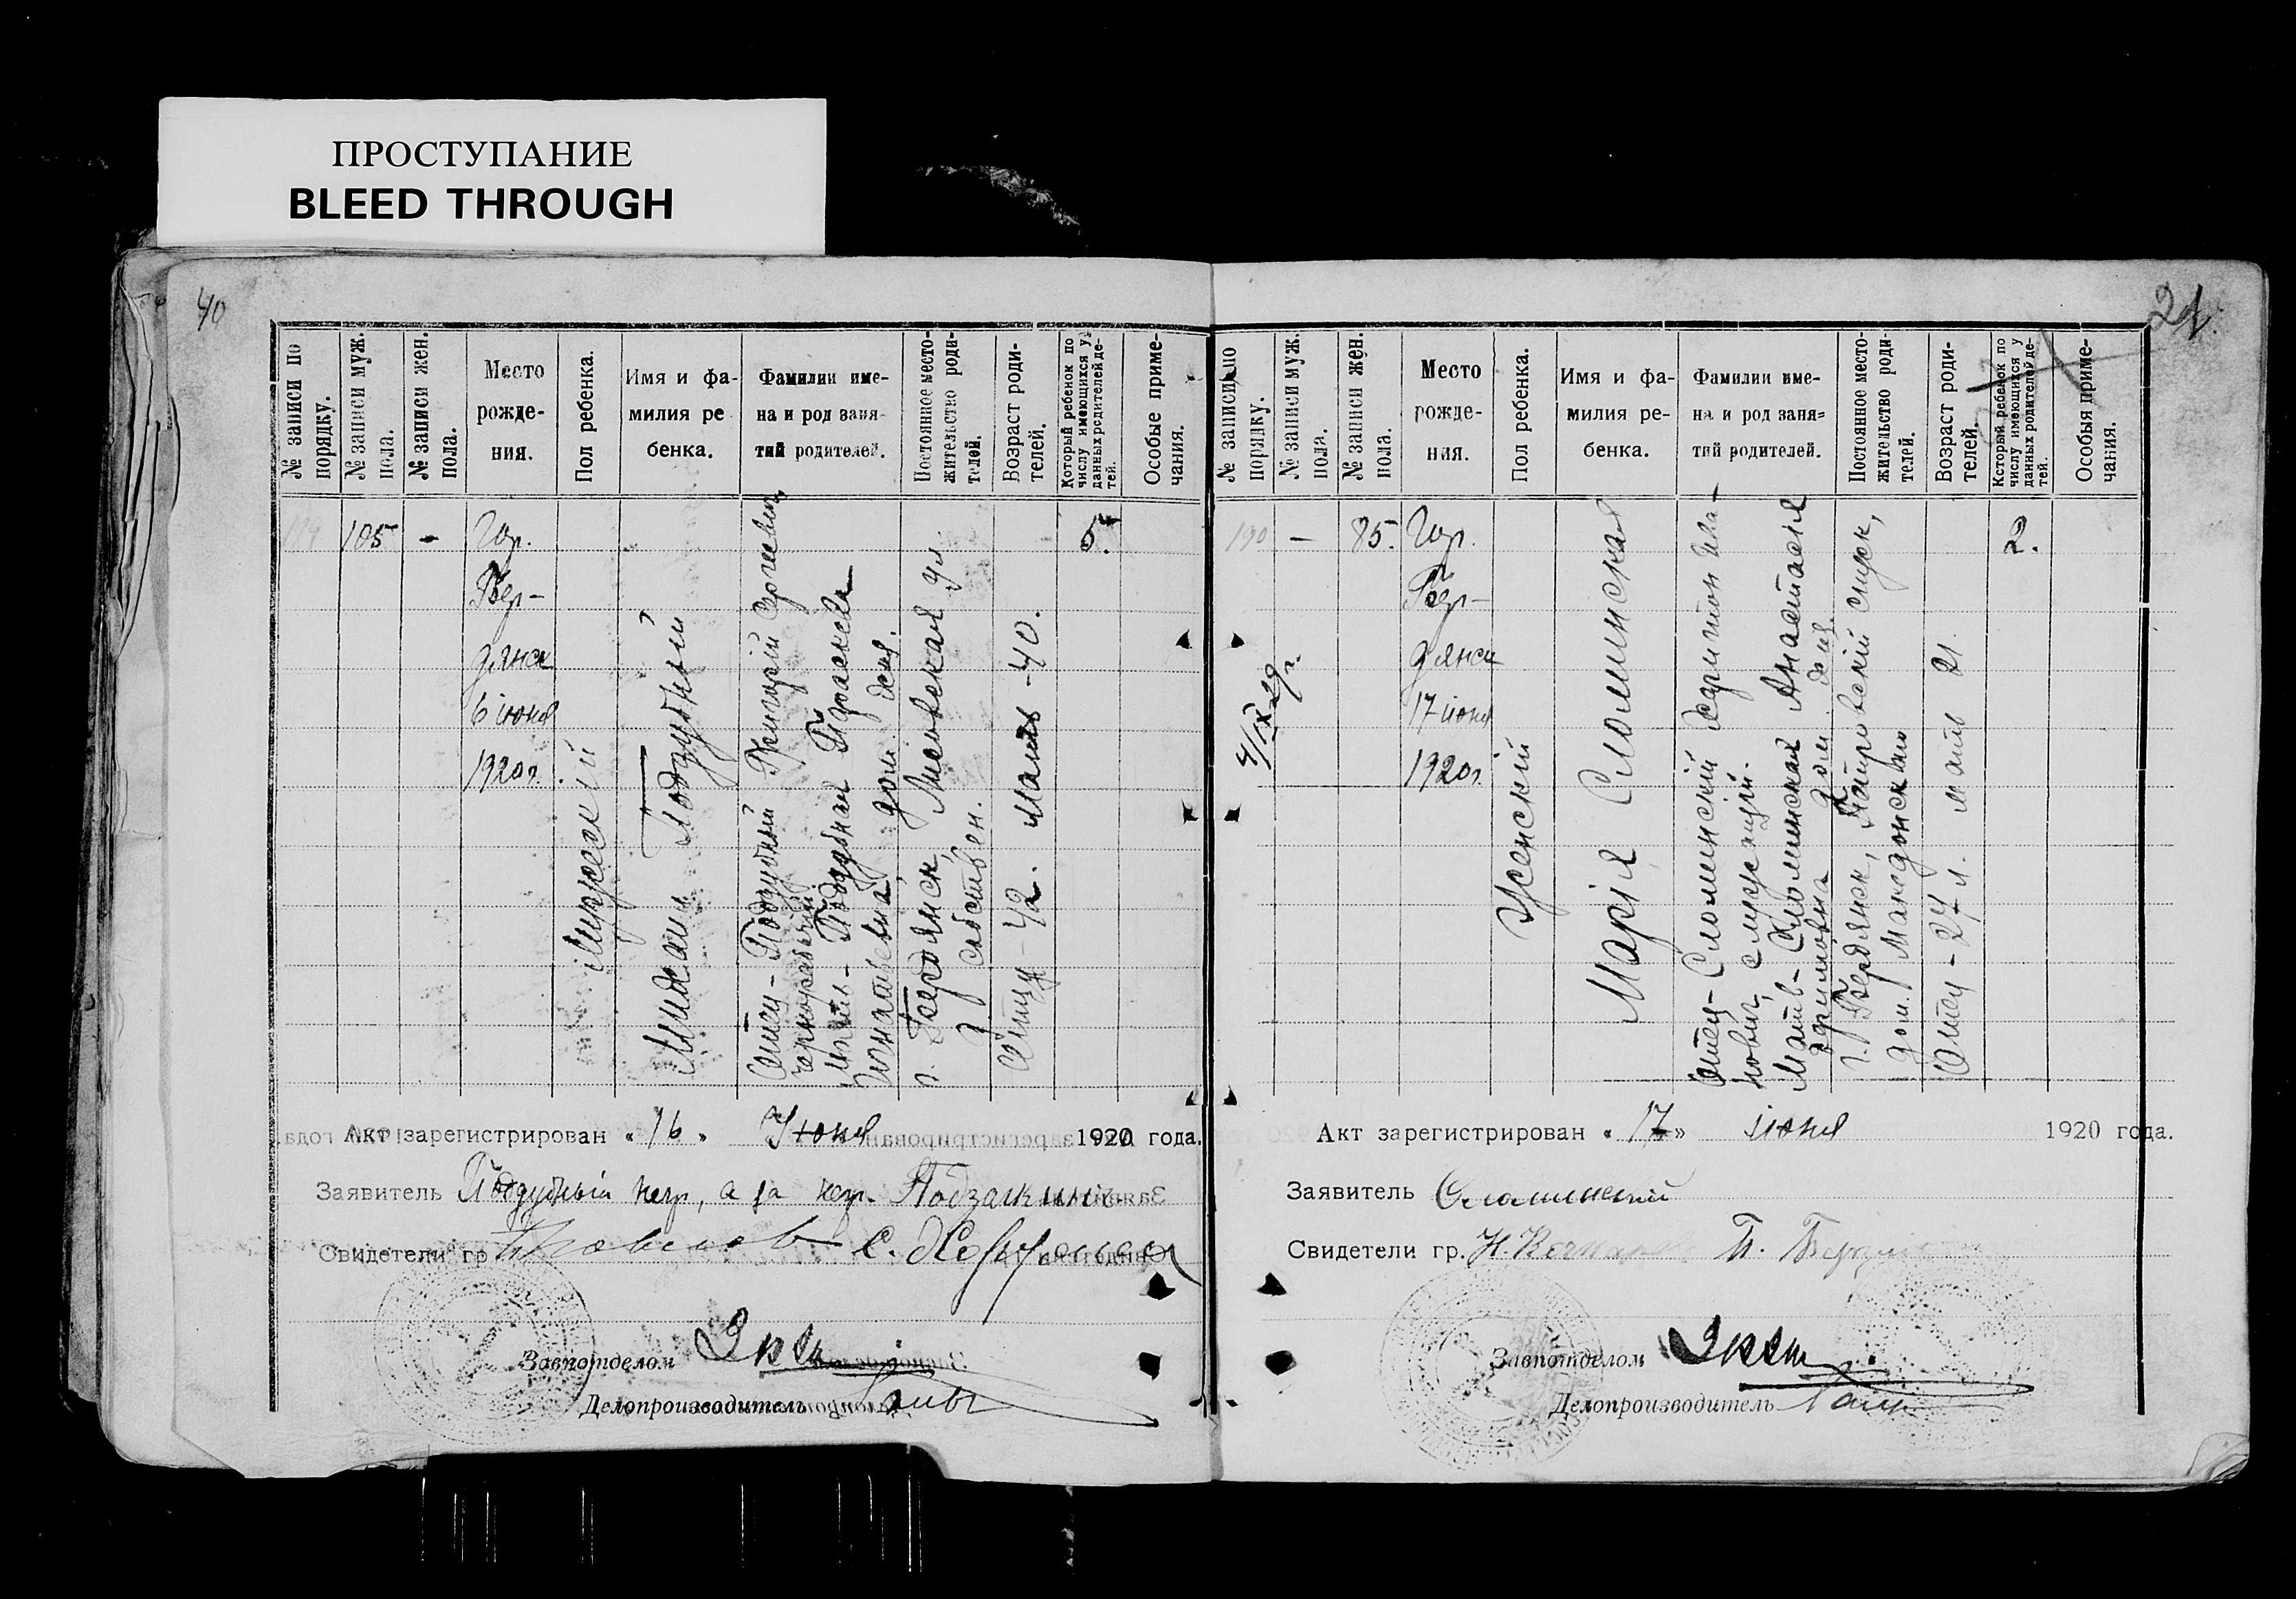 ПРОСТУПАНИЕ
BLEED THROUGH
40
№ записи по порядку.
№ записи муж. пола.
№ записи жен. пола.
Место рожде-ния.
Пол ребенка.
Имя и фа-милия ре бенка.
Фамилии име-на и род заня-тий родителей.
Постоянное место-жительство роди-телей.
Возраст роди-телей.
Который ребенок по числу имеющихся у данных родителей де-тей.
Особые приме-чания.
105
-
Гор.
Бер-
дянск
6 июня
1920 г.
Мужеский
Михаил Поддубный
Отец - Поддубный Григорий Сергеевич
чернорабочий.
Мать - Поддубная Параскева
Игнатьевна, дом. хоз.
г. Бердянск, Лисовская ул.
д. собствен.
Отцу - 42. Мать - 40.
5.
Акт зарегистрирован « 16 » Июня 1920 года.
Заявитель Поддубный негр, а за негр.
Свидетели гр.
Завпотделом
Делопроизводитель
21.
№ записи по порядку.
№ записи муж. пола.
№ записи жен. пола.
Место рожде-ния.
Пол ребенка.
Имя и фа-милия ре-бенка.
Фамилии име-на и род заня-тий родителей.
Постоянное место-жительство роди-телей.
Возраст роди-телей.
Который ребенок по числу имеющихся у данных родителей де-тей.
Особыя приме-чания.
190
-
85.
Гор.
Бер-
дянск
17 июня
1920 г.
4/IX 29 г.
Женский
Марія Сломинская
Отец - Сломинскій Іва-
нович, служащій.
Мать - Сломинская Анастасія
дом. хоз.
г. Бердянск, спуск,
дом.
Отец - 27 л. мать 21.
2.
Акт зарегистрирован « 17 » июня 1920 года.
Заявитель Сломинский
Свидетели гр.
Завпотделом
Делопроизводитель